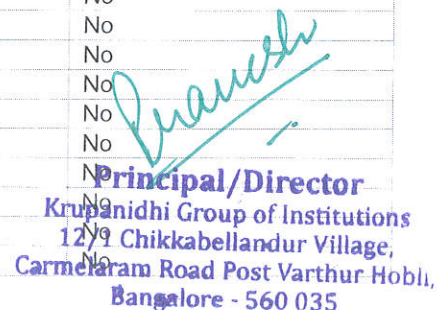 No
No
No
No
No
No
No
Principal/Director
No
Krupanidhi Group of Institutions
No
12/1 Chikkabellandur Village,
No
Carmelaram Road Post Varthur Hobli,
Bangalore - 560 035